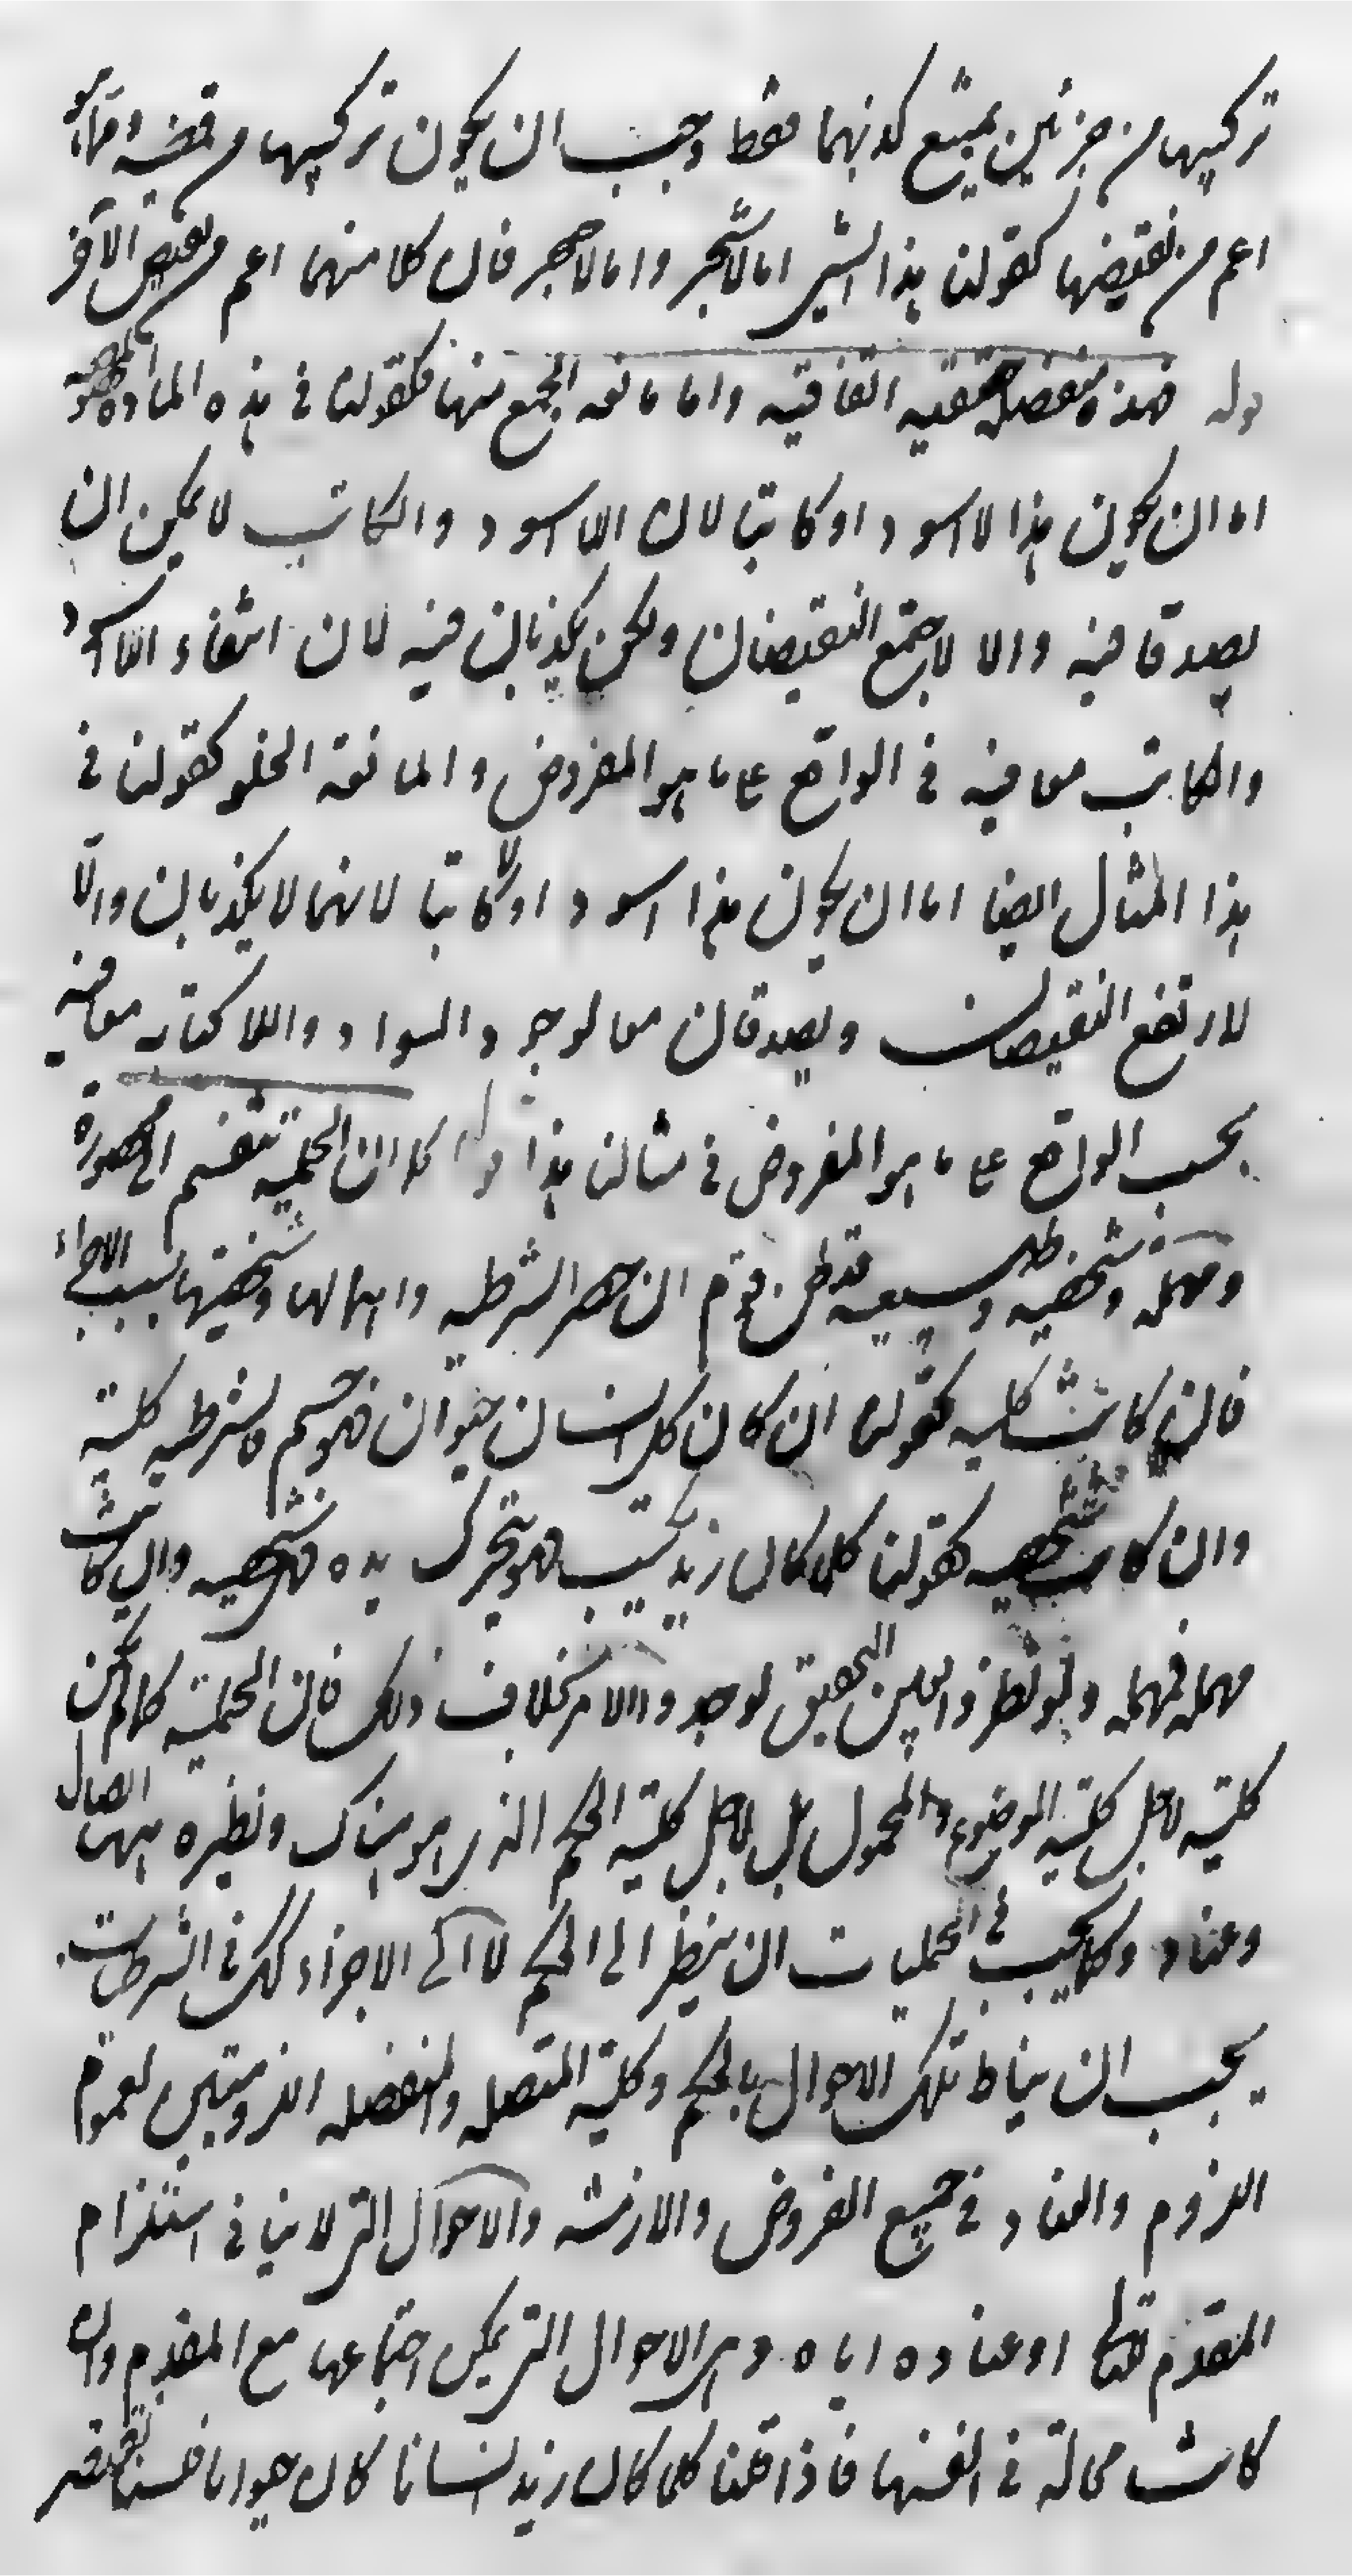 تركيبها من جزئين يمتنع كذبهما فقط وجب ان يكون تركيبها من قضية ومما هو
اعم من نقيضها كقولنا هذا الشئ اما لا شجر واما لا حجر فان كلا منهما اعم من نقيض الآخر
قوله فهذه منفصلة حقيقيه اتفاقيه واما مانعه الجمع منها فكقولنا في هذه المادة
اما ان يكون هذا لا اسود او كاتبا لان اللااسود والكاتب لا يمكن ان
يصدقا فيه والا لاجتمع النقيضان ولكن يكذبان فيه لان انتفاء اللااسود
والكاتب معا فيه في الواقع على ما هو المفروض والمانعة الخلو كقولنا في
هذا المثال ايضا اما ان يكون هذا اسود او لا كاتبا لانهما لا يكذبان والا
لارتفع النقيضان ويصدقان معا لوجود السواد واللاكتابه معا فيه
بحسب الواقع على ما هو المفروض في مثالنا هذا قوله كما ان الحملية تنقسم الى محصورة
ومهملة وشخصيه وطبيعيه فقد ظن قوم ان حصر الشرطيه واهمالها وشخصيتها بسبب الاجزاء
فان كانت كليه كقولنا ان كان كل انسان حيوان فهو جسم فالشرطيه كلية
وان كانت شخصيه كقولنا كلما كان زيد يكتب فهو يتحرك يده فشخصيه وان كانت
مهمله فمهمله ولو نظروا بعين التحقيق لوجدوا الامر بخلاف ذلك فان الحملية كما لم تكن
كلية لاجل كلية الموضوع والمحمول بل لاجل كلية الحكم الذى هو هناك ونظيره ههنا اتصال
وعناد وكما يجب في الحمليات ان ينظر الى الحكم لا الى الاجزاء كذلك في الشرطيات
يجب ان يناط تلك الاحوال بالحكم وكلية المتصله والمنفصله اللزوميتين لعموم
اللزوم والعناد في جميع الفروض والازمنه والاحوال التى لا ينافى استلزام
المقدم للتالى او عناده اياه وهى الاحوال التى يمكن اجتماعها مع المقدم وان
كانت محالة في انفسها فاذا قلنا كلما كان زيد انسانا كان حيوانا فلسنا نقتصر